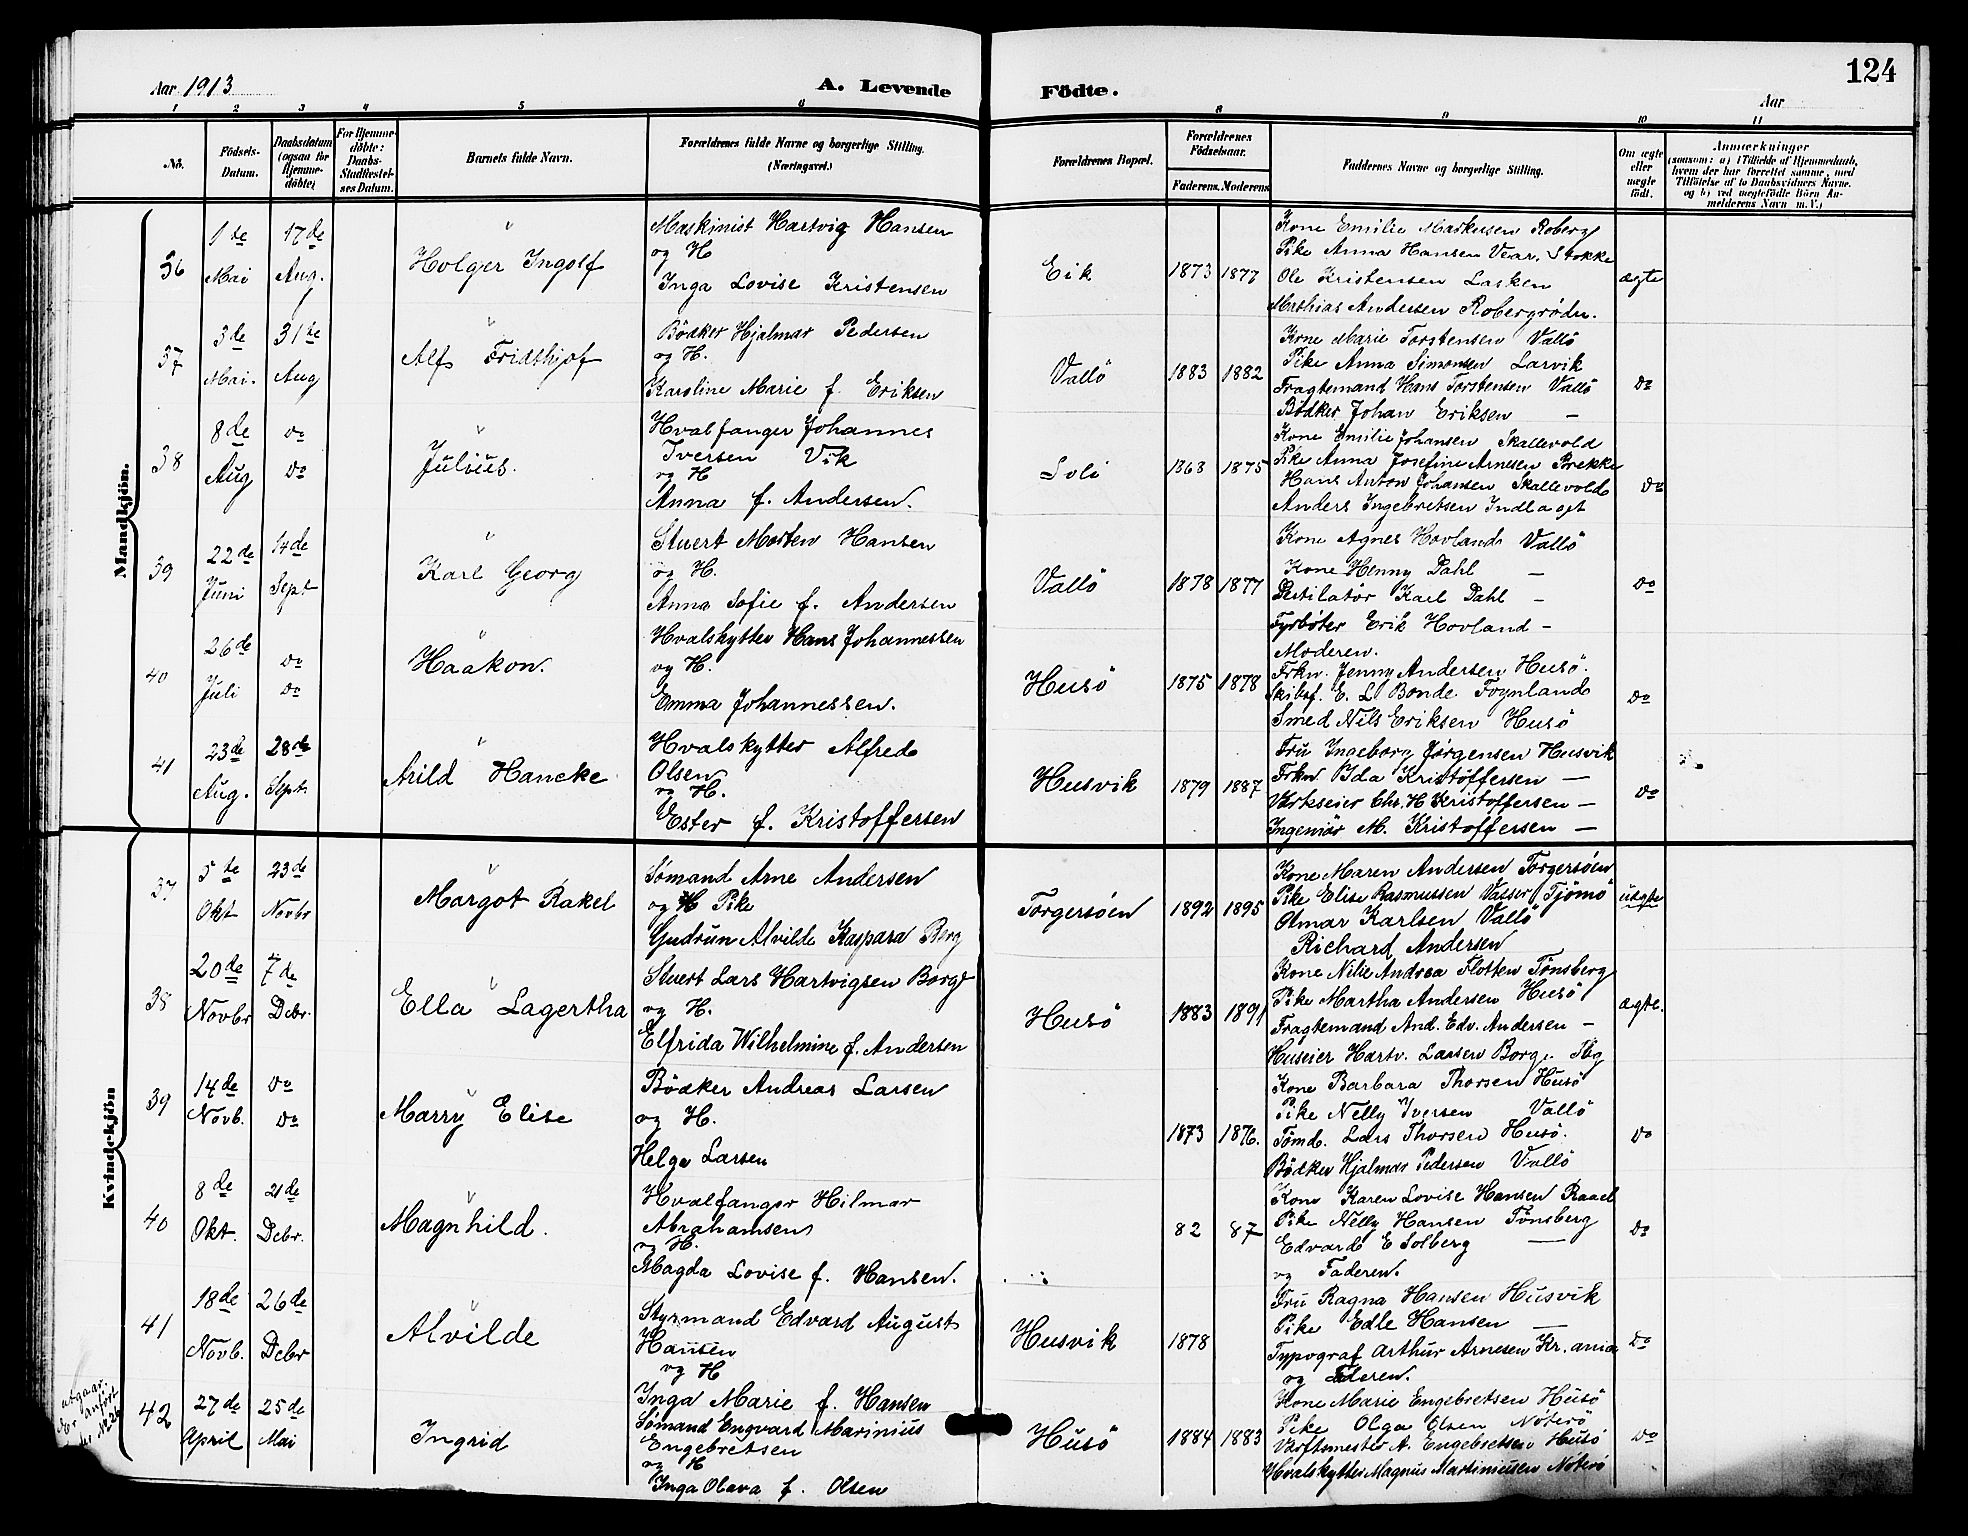 Aar 1913
A. Levende Födte.
124
Aar
1 2 3 4 5 6 8 9 10 11
No.
Födsels-Datum.
Daabsdatum (ogsaa for Hjemme-döbte)
For Hjemme-döbte: Daabs-Stadfæstel-ses Datum.
Barnets fulde Navn.
Forældrenes fulde Navne og borgerlige Stilling. (Næringsvei.)
Forældrenes Bopæl.
Forældrenes Födselsaar.
Faderens. Moderens
Faddernes Navne og borgerlige Stilling.
Om ægte eller uægte födt.
Anmærkninger
(saasom: a) i Tilfælde af Hjemmedaab, hvem der har forrettet samme, med Tilföielse af to Daabsvidners Navne. og b) ved uægtefödte Börn An-melderens Navn m.V.)
Mandkjön.
36
1 de Mai
17 de Aug.
Holger Ingolf
Maskinist Hartvig Hansen
og H
Inga Lovise Kristensen
Eik
1873 1877
Kone Emilie Markusen Roberg
Pike Anna Hansen Vear, Stokke
Ole Kristensen Lasken
Mathias Andersen Robergrødn.
ægte
37
3 de Mai.
31 te Aug
Alf Fridthjof
Bödker Hjalmar Pedersen
og H.
Karoline Marie f. Eriksen
Vallö
1883 1882
Kone Marie Torstensen Vallö
Pike Anna Simonsen Larvik
Fragtemand Hans Torstensen Vallö
Bödker Johan Eriksen —
Do
38
8 de Aug
Do Do
Julius.
Hvalfanger Johannes
Iversen Vik
og H
Anna f. Andersen.
Soli
1868 1875
Kone Emilie Johansen Skallevold
Pike Anna Josefine Arnesen Brekke
Hans Anton Johansen Skallevold
Anders Ingebretsen Indlaget
Do
39
22 de Juni
14 de Sept
Karl Georg
Stuert Morten Hansen
og H.
Anna Sofie f. Andersen
Vallö
1878 1877
Kone Agnes Hovland Vallö
Kone Henny Dahl —
Destilatör Karl Dahl —
Fyrböter Erik Hovland —
Do
40
26 de Juli
Do Do
Haakon.
Hvalskytter Hans Johannessen
og H.
Emma Johannessen.
Husö
1875 1878
Moderen.
Frkn. Jenny Andersen Husö.
Skibsf. E. L. Bonde Föynland
Smed Nils Eriksen Husö
Do
41
23 de Aug.
28 de Sept.
Arild Hancke
Hvalskytter Alfred
Olsen
og H.
Ester f. Kristoffersen
Husvik
1879 1887
Fru Ingeborg Jørgensen Husvik
Frkn Ida Kristoffersen —
Værkseier Chr. H Kristoffersen —
Ingeniör M. Kristoffersen —
Do
Kvindekjön
37
5 te Okt
23 de Novbr
Margot Rakel
Sømand Arne Andersen
og Pike
Gudrun Alvilde Kaspara Berg
Torgersøen
1892 1895
Kone Maren Andersen Torgersøen
Pike Elise Rasmussen Vasser, Tjömö
Otmar Karlsen Vallö
Richard Andersen
uægte
38
20 de Novbr
7 de Debr.
Ella Lagertha
Stuert Lars Hartvigsen Borge
og H.
Elfrida Wilhelmine f. Andersen
Husö
1883 1891
Kone Nilie Andrea Flotten Tönsberg
Pike Martha Andersen Husö
Fragtemand And. Edv. Andersen —
Huseier Hartv. Larsen Borge Tbg
ægte.
39
14 de Novb.
Do Do
Marry Elise
Bödker Andreas Larsen
og H.
Helga Larsen
1873 1876.
Kone Barbara Thorsen Husö
Pike Nelly Iversen Vallö
Tömd. Lars Thorsen Husö.
Bödker Hjalmar Pedersen Vallö
Do
40
8 de Okt.
21 de Debr.
Magnhild.
Hvalfanger Hilmar
Abrahamsen
og H.
Magda Lovise f. Hansen.
82 87
Kone Karen Lovise Hansen Raael
Pike Nelly Hansen Tönsberg
Edvard E Solberg —
og Faderen.
Do
41
18 de Novb.
26 de Debr
Alvilde
Styrmand Edvard August
Hansen
og H
Inga Marie f. Hansen
Husvik
1878
Fru Ragna Hansen Husvik
Pike Edle Hansen —
Typograf Arthur Arnesen Kr. ania
og Faderen.
Do
utgaar.
Er anført
No 26
42
27 de April
25 de Mai
Ingrid
Sömand Engvard Marinius
Engebretsen
og H
Inga Olava f. Olsen
Husö
1884 1883
Kone Marie Engebretsen Husö
Pike Olga Olsen Nöterö
Værftsmester A. Engebretsen Husö
Hvalskytter Magnus Martiniussen Nöterö
Do